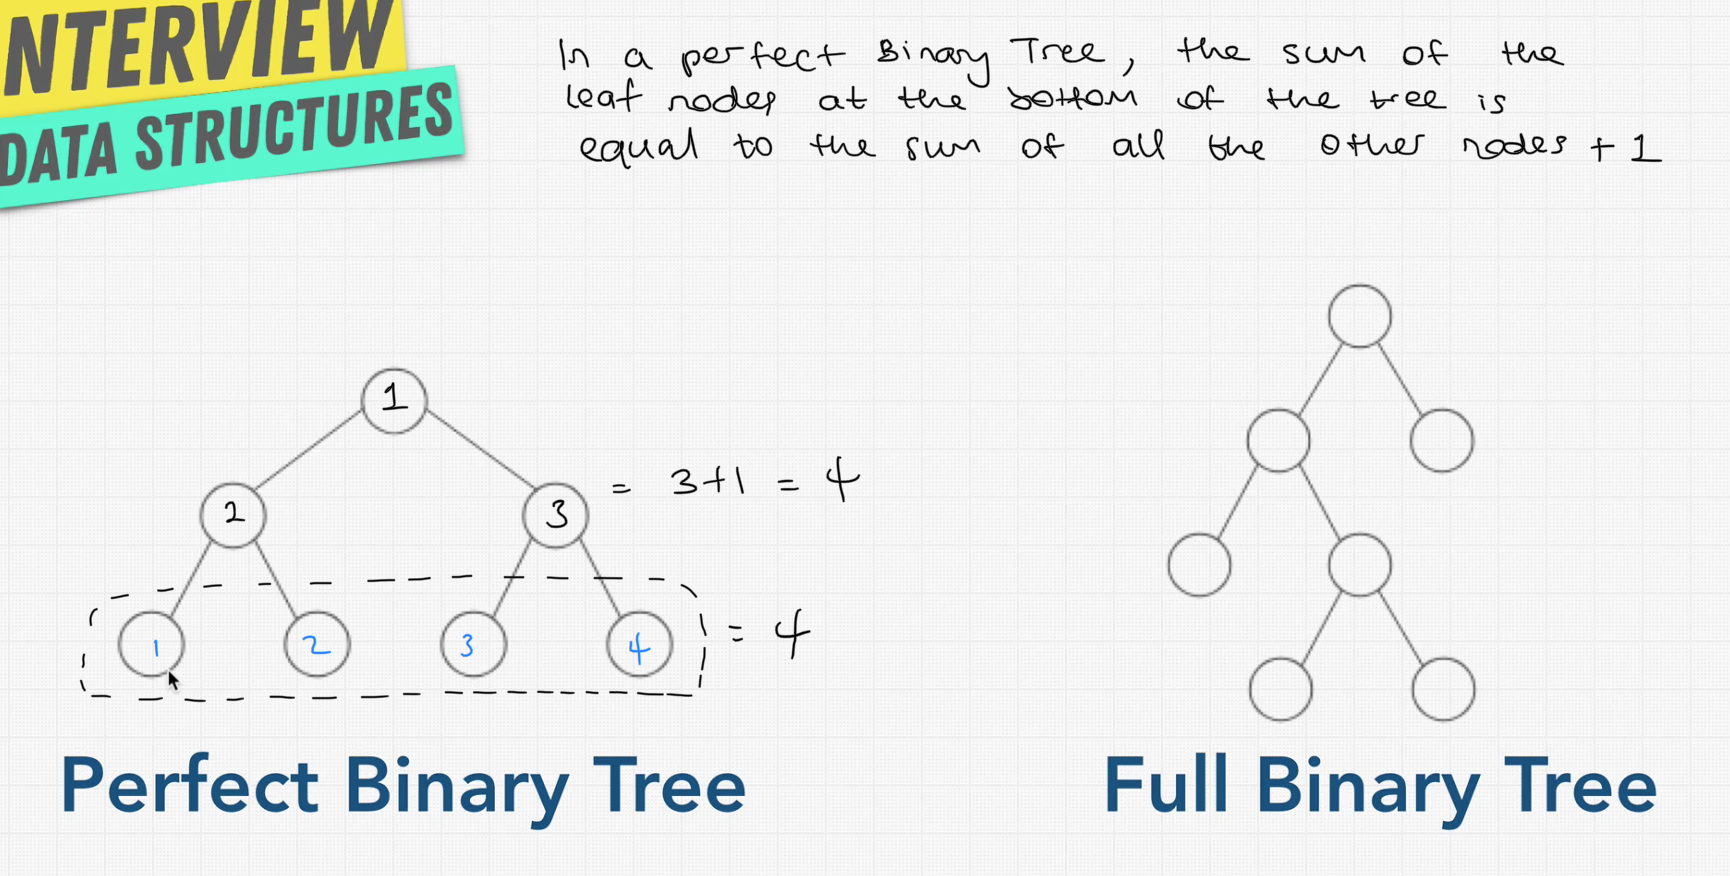 NTERVIEW
DATA STRUCTURES
In a perfect Binary Tree, the sum of the
leaf nodes at the bottom of the tree is
equal to the sum of all the other nodes + 1
1
2
3
= 3+1 = 4
1
2
3
4
= 4
Perfect Binary Tree
Full Binary Tree